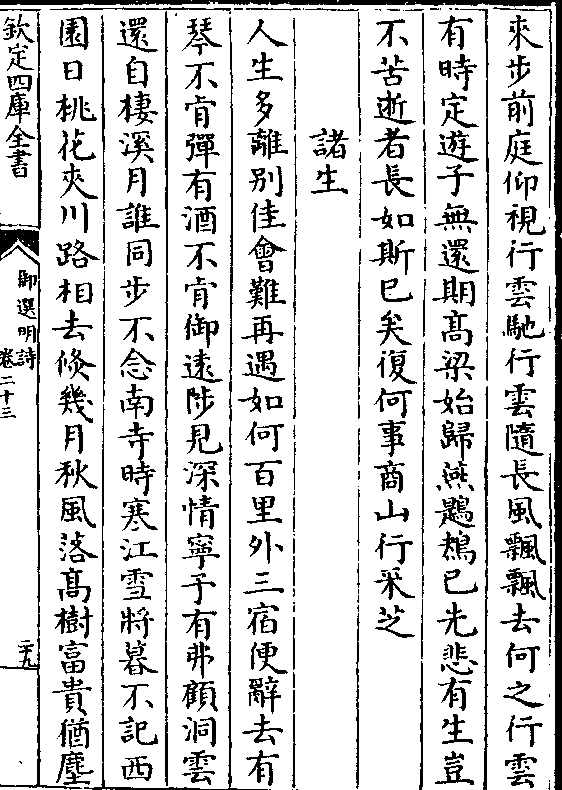 來步前庭仰視行雲馳行雲隨長風飄飄去何之行雲
有時定遊子無還期髙梁始歸燕鶗鴂已先悲有生豈
不苦逝者長如斯已矣復何事商山行采芝
諸生
人生多離別佳會難再遇如何百里外三宿便辭去有
琴不肯彈有酒不肯御遠陟見深情寧予有弗顧洞雲
還自棲溪月誰同步不念南寺時寒江雪將暮不記西
園日桃花夾川路相去倐幾月秋風落髙樹富貴猶塵
欽定四庫全書
御選明詩
卷二十三
二十九